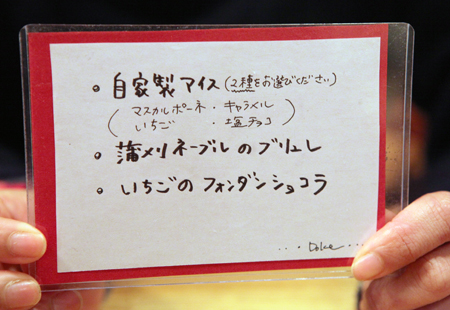 • 自家製アイス(2種をお選びください)
(マスカルポーネ・キャラメル
いちご ・塩チョコ)
• 蒲メリネーブルのブリュレ
• いちごのフォンダンショコラ
...Dolce...